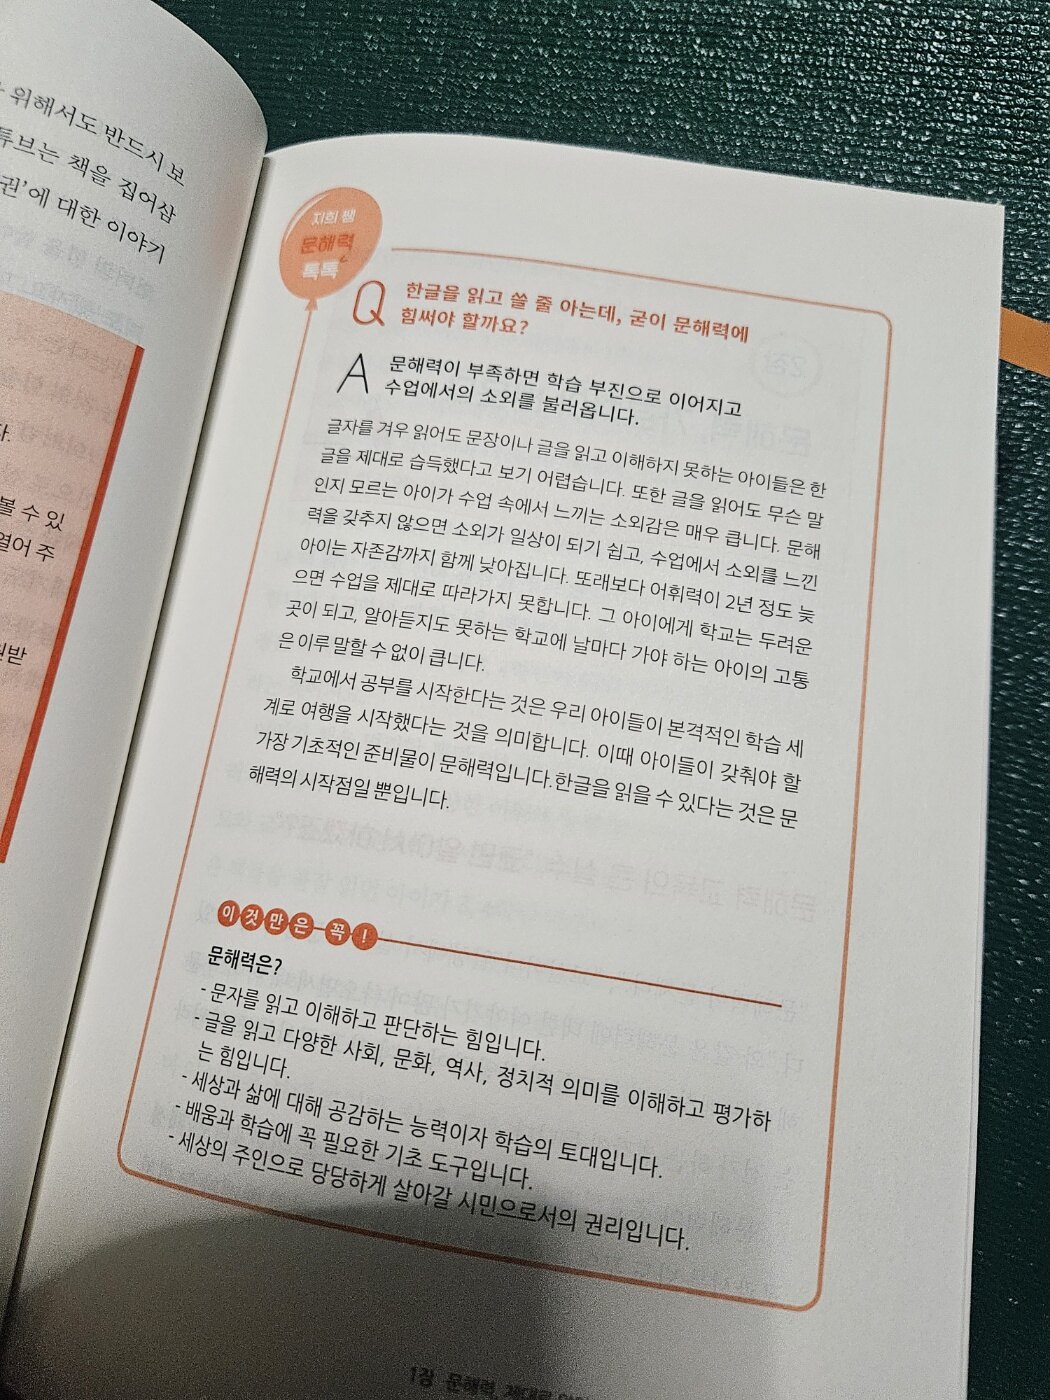 위해서도 반드시 보
튜브는 책을 집어삼
권'에 대한 이야기
다.
볼 수 있
열어 주
지희 쌤
문해력
톡톡
Q 한글을 읽고 쓸 줄 아는데, 굳이 문해력에
힘써야 할까요?
A 문해력이 부족하면 학습 부진으로 이어지고
수업에서의 소외를 불러옵니다.
글자를 겨우 읽어도 문장이나 글을 읽고 이해하지 못하는 아이들은 한
글을 제대로 습득했다고 보기 어렵습니다. 또한 글을 읽어도 무슨 말
인지 모르는 아이가 수업 속에서 느끼는 소외감은 매우 큽니다. 문해
력을 갖추지 않으면 소외가 일상이 되기 쉽고, 수업에서 소외를 느낀
아이는 자존감까지 함께 낮아집니다. 또래보다 어휘력이 2년 정도 늦
으면 수업을 제대로 따라가지 못합니다. 그 아이에게 학교는 두려운
곳이 되고, 알아듣지도 못하는 학교에 날마다 가야 하는 아이의 고통
은 이루 말할 수 없이 큽니다.
학교에서 공부를 시작한다는 것은 우리 아이들이 본격적인 학습 세
계로 여행을 시작했다는 것을 의미합니다. 이때 아이들이 갖춰야 할
가장 기초적인 준비물이 문해력입니다.한글을 읽을 수 있다는 것은 문
해력의 시작점일 뿐입니다.
이것만은 꼭!
문해력은?
- 문자를 읽고 이해하고 판단하는 힘입니다.
- 글을 읽고 다양한 사회, 문화, 역사, 정치적 의미를 이해하고 평가하
는 힘입니다.
- 세상과 삶에 대해 공감하는 능력이자 학습의 토대입니다.
- 배움과 학습에 꼭 필요한 기초 도구입니다.
- 세상의 주인으로 당당하게 살아갈 시민으로서의 권리입니다.
1장 문해력, 제대로